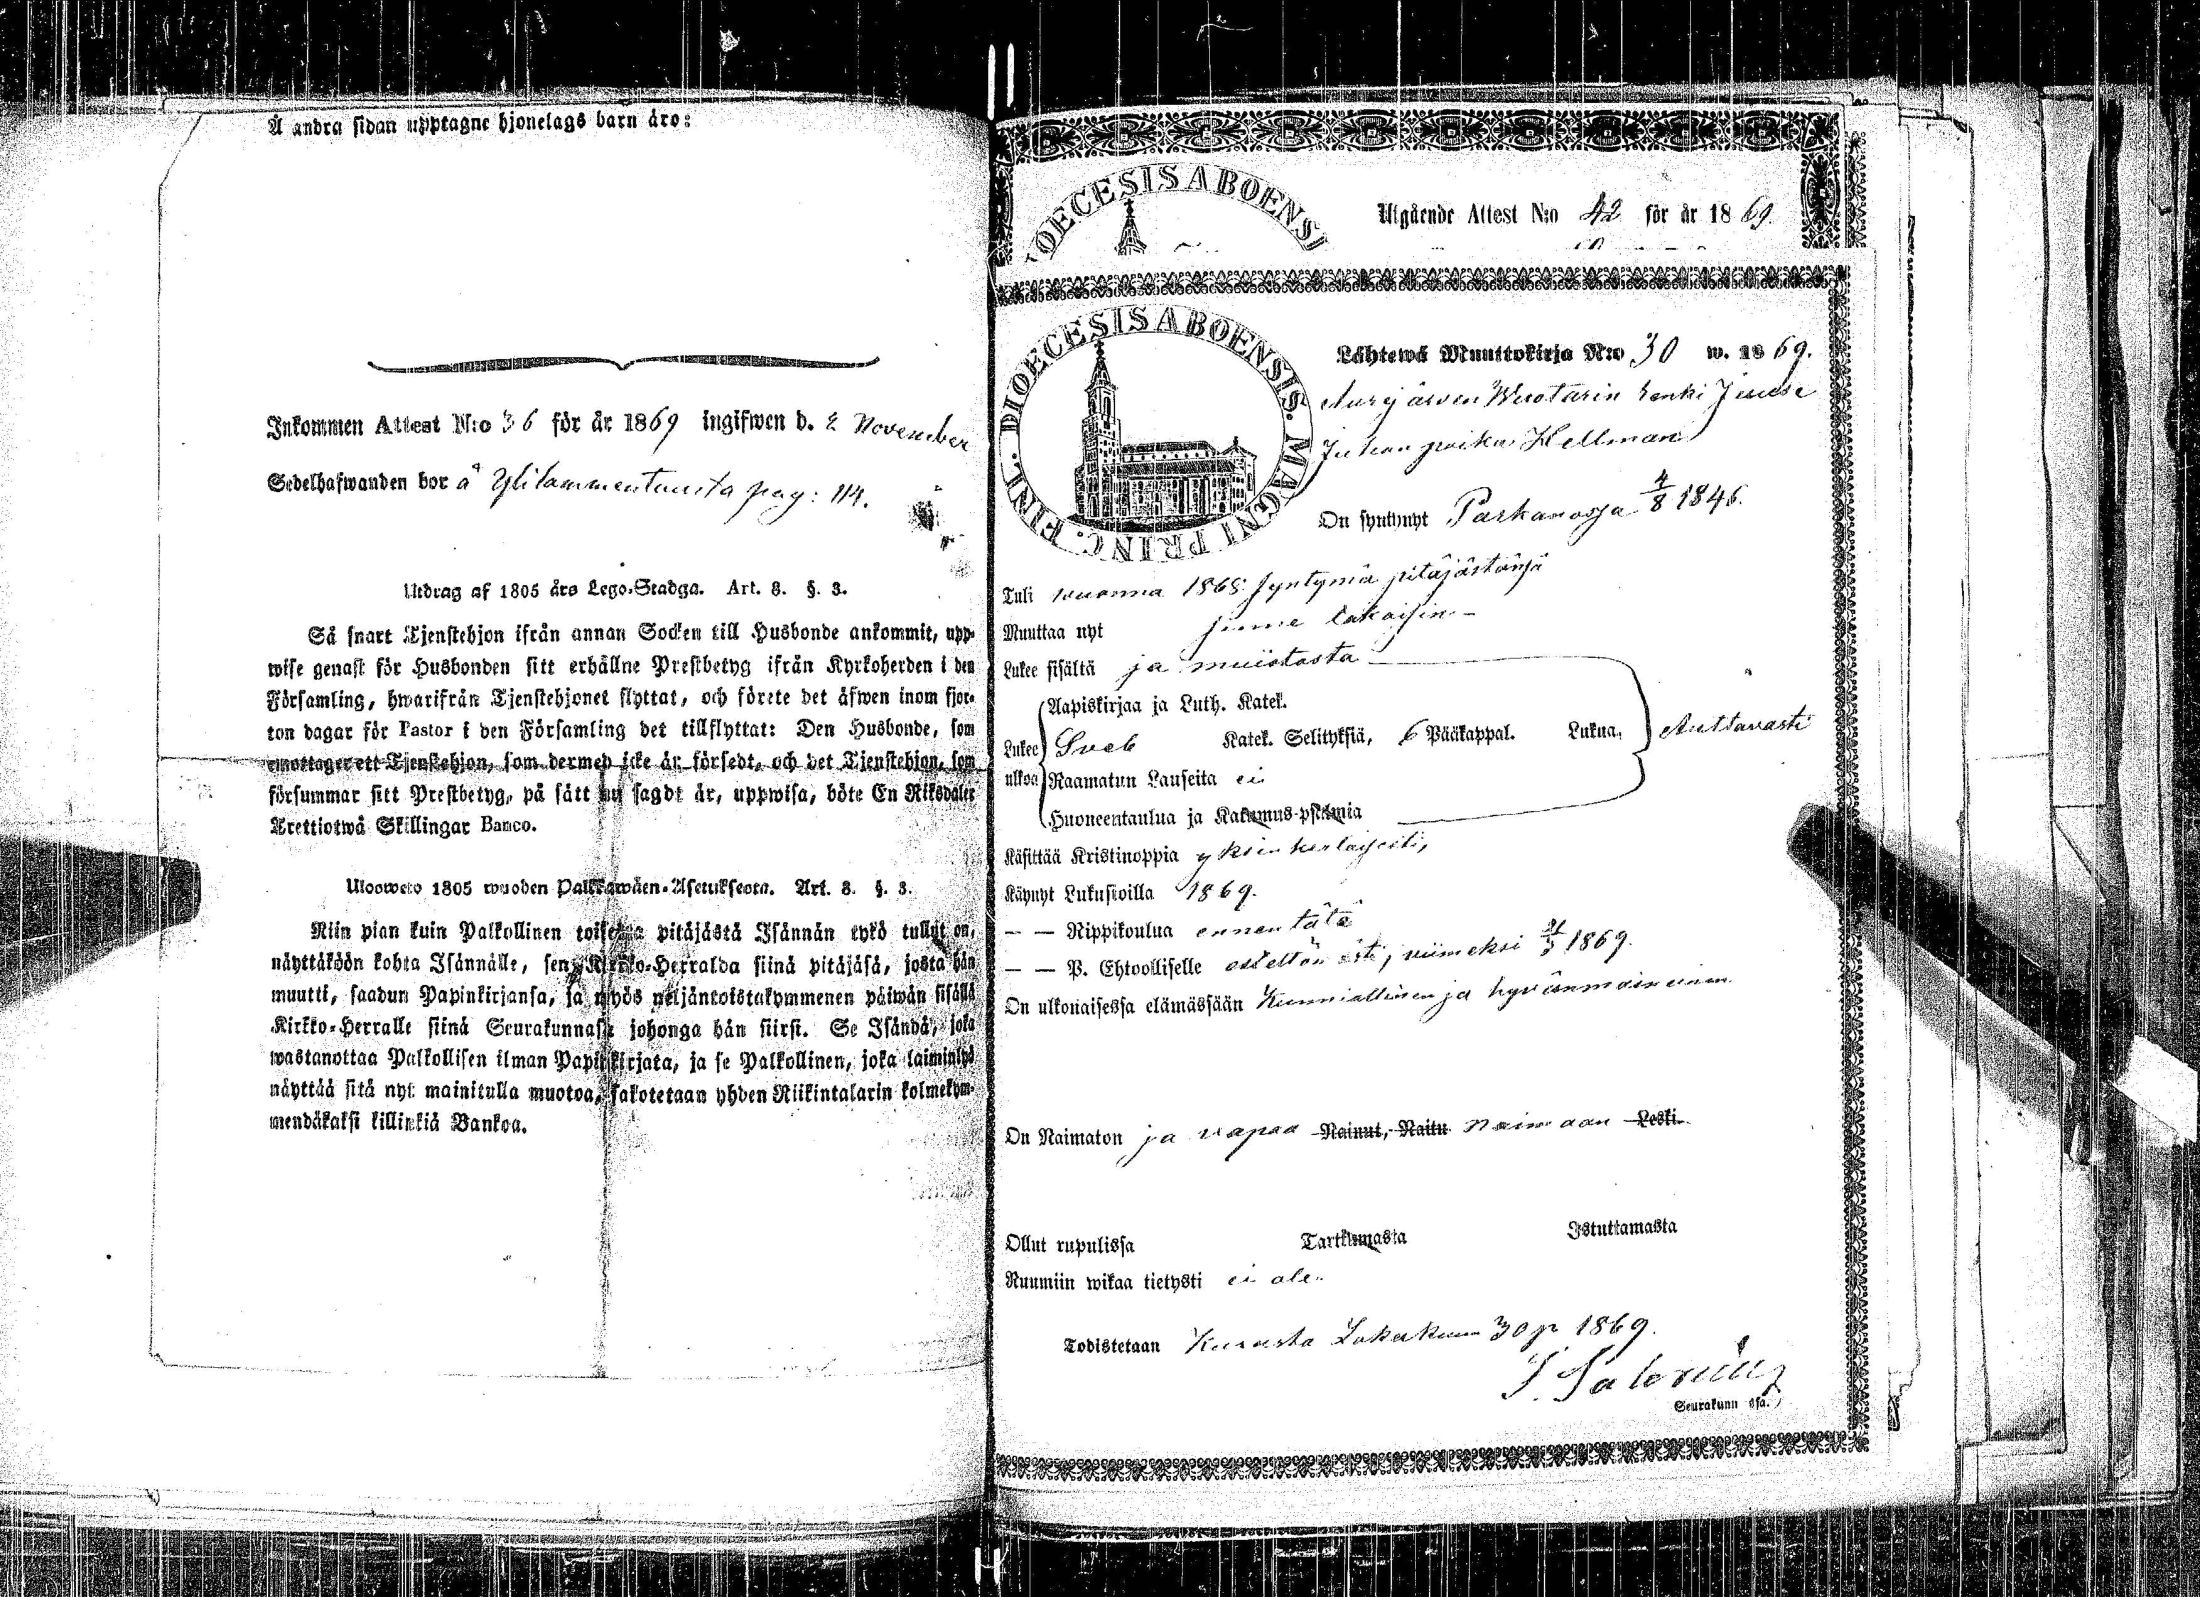 Å andra sidan upptagne hjonelags barn äro:
Inkommen Attest N:o 36 för år 1869 ingifwen d. 2 November
Sedelhafwanden bor å Ylilammentausta pag: 114.
Utdrag af 1805 års Lego-Stadga. Art. 8. §. 3.
Så snart Tjenstehjon ifrån annan Socken till Husbonde ankommit, upp-
wise genast för Husbonden sitt erhållne Prestbetyg ifrån Kyrkoherden i den
Församling, hwarifrån Tjenstehjonet flyttat, och förete det äfwen inom fjor-
ton dagar för Pastor i den Församling det tillflyttat: Den Husbonde, som
emottager ett Tjenstehjon, som dermed icke är försedt, och det Tjenstehjon, som
försummar sitt Prestbetyg, på sätt nu sagdt är, uppwisa, böte En Riksdaler
Trettiotwå Skillingar Banco.
Ulosweto 1805 wuoden Palkkawäen-Asetuksesta. Art. 8. §. 3.
Niin pian kuin Palkollinen toisesta pitäjästä Isännän tykö tullut on,
näyttäköön kohta Isännälle, sen Kirkko-Herralda siinä pitäjäsä, josta hän
muutti, saadun Papinkirjansa, ja myös neljäntoistakymmenen päiwän sisällä
Kirkko-Herralle siinä Seurakunnassa johonga hän siirsi. Se Isändä, joka
wastanottaa Palkollisen ilman Papinkirjata, ja se Palkollinen, joka laiminlyö
näyttää sitä nyt mainitulla muotoa, sakotetaan yhden Riikintalarin kolmekym-
mendäkaksi killinkiä Bankoa.
DIOECESIS ABOENSI
Utgående Attest N:o 42 för år 1869.
DIOECESIS ABOENSIS. MAGNI PRINC. FINL.
Lähtewä Muuttokirja N:o 30 w. 1869.
renki
Juhan poika Hellman
On syntynyt Parkanossa 4/8 1846.
Tuli wuonna 1868 syntymä pitäjästänsä
Muuttaa nyt sinne takaisin
Lukee sisältä ja muistosta
Lukee ulkoa
Aapiskirjaa ja Luth. Katek.
Sveb Katek. Selityksiä, 6 Pääkappal. Lukua, Auttavasti
Raamatun Lauseita ei
Huoneentaulua ja Katumus-psalmia
Käsittää Kristinoppia yksinkertaisesti,
Käynyt Lukusioilla 1869.
— — Rippikoulua ennen tätä
— — P. Ehtoolliselle esteltömästi, viimeksi 1869.
On ulkonaisessa elämässään Kunniallinen ja hyvänmaineinen
On Naimaton ja vapaa Nainut, Naitu naimaan Leski
Ollut rupulissa Tartkumasta Istuttamasta
Ruumiin wikaa tietysti ei ole.
Todistetaan Kurusta Lokakuun 30 p 1869.
Seurakunn ssa.